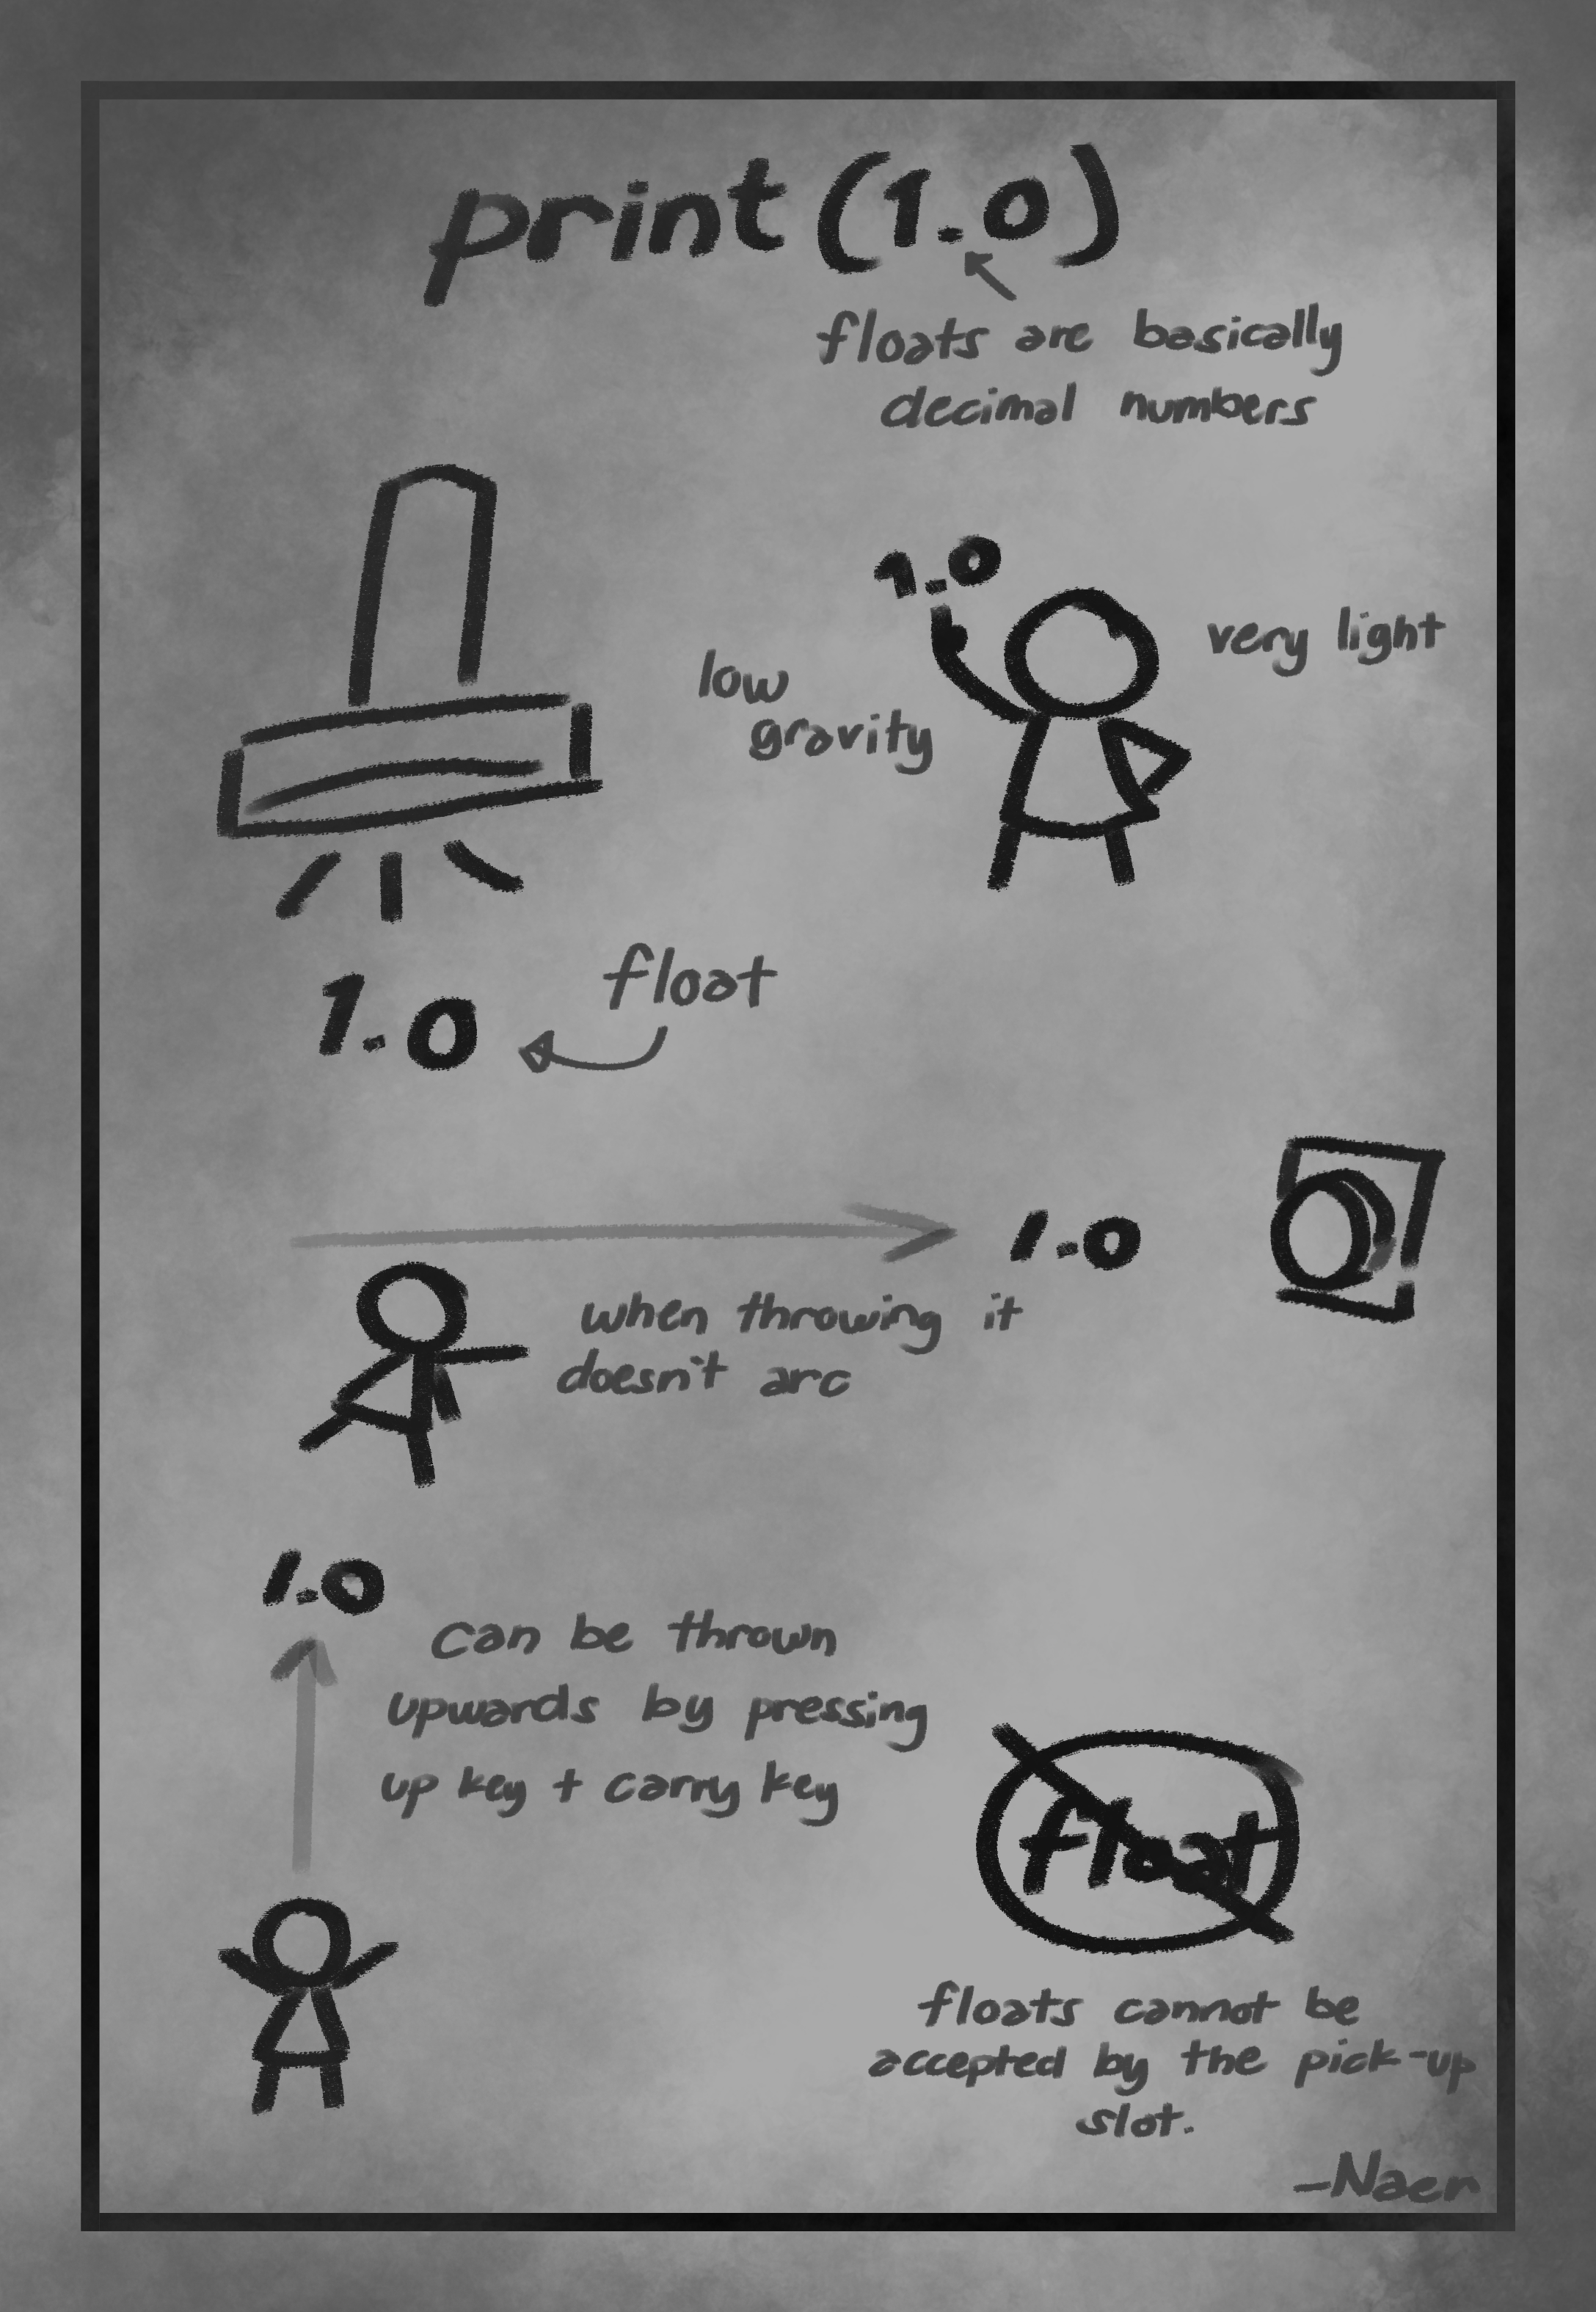 print(1.0)
floats are basically
decimal numbers
1.0
very light
low
gravity
float
1.0
1.0
when throwing it
doesn't arc
1.0
can be thrown
upwards by pressing
up key + carry key
float
floats cannot be
accepted by the pick-up
slot.
-Naer